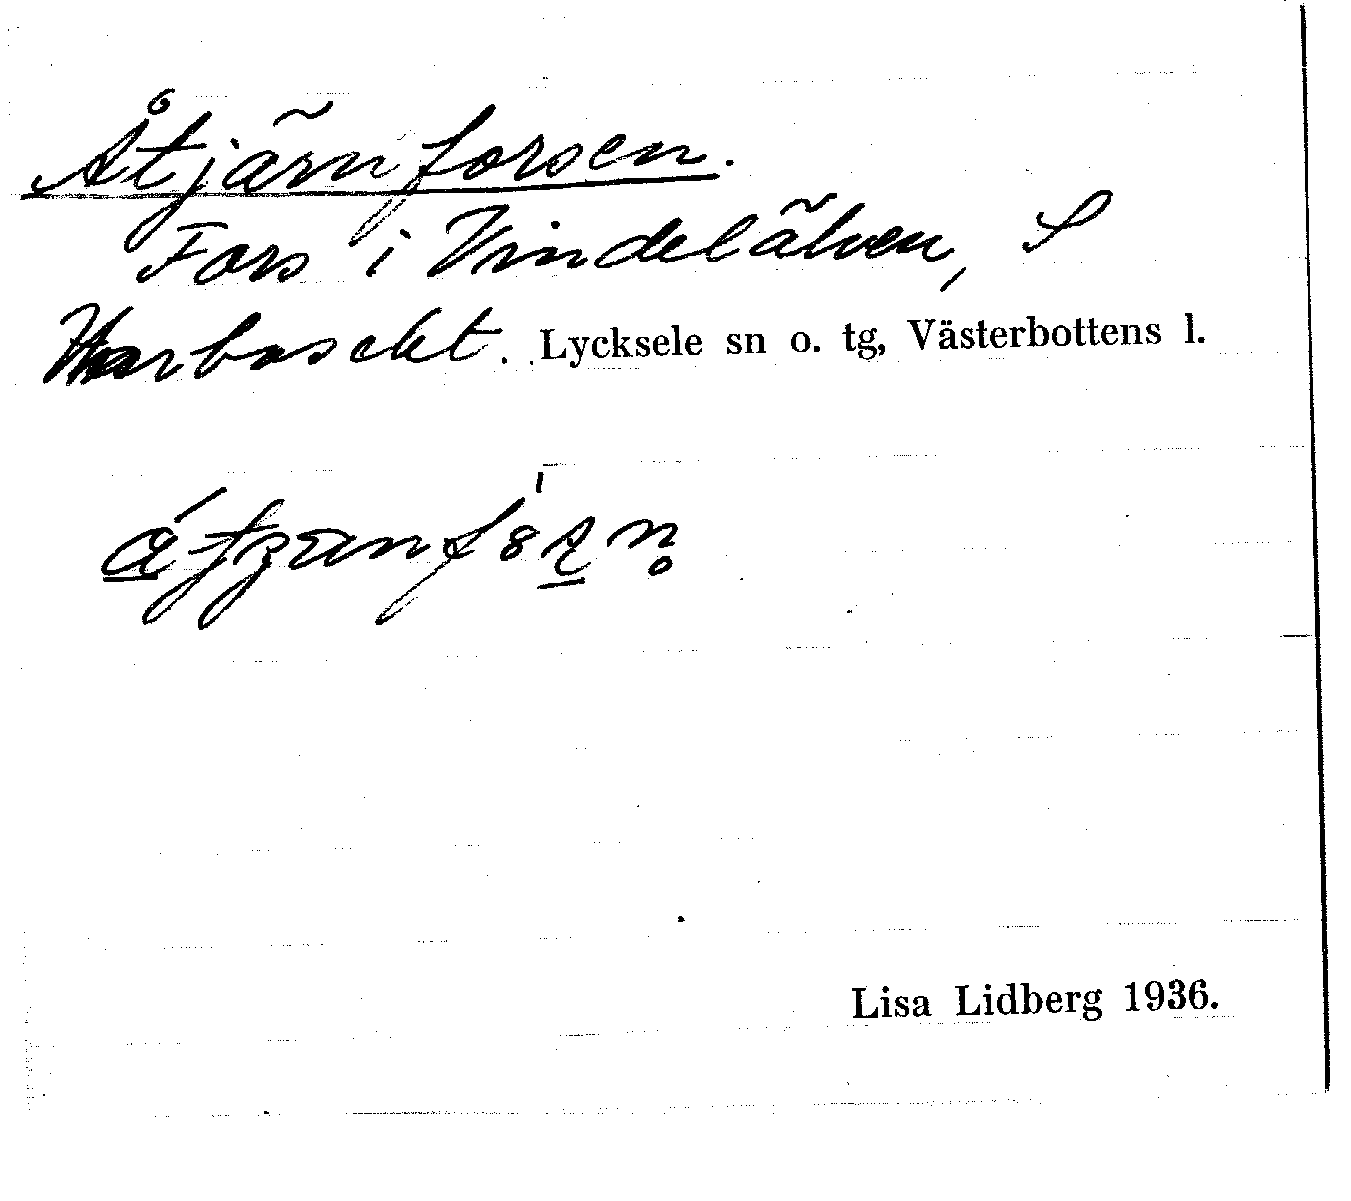 Åtjärnforsen.
Fors i Vindelälven, S
Lycksele sn o. tg, Västerbottens l.
Lisa Lidberg 1936.